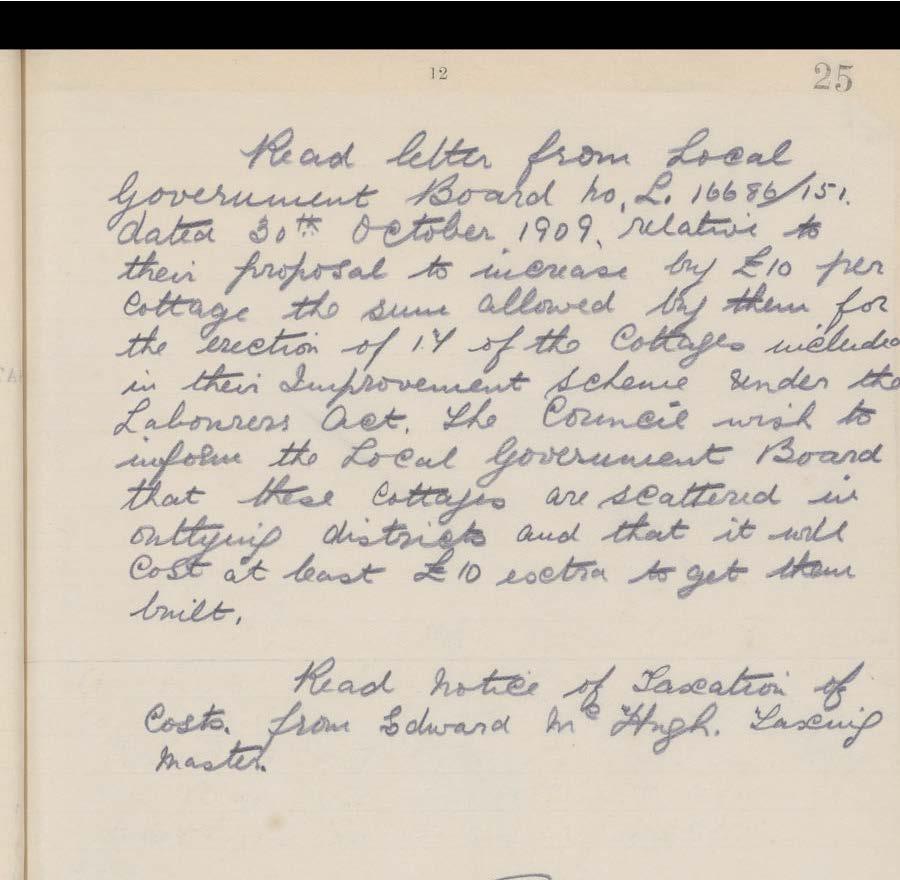 12
25
Read letter from Local
Government Board No. L. 16686/151.
dated 30th October 1909. relative to
their proposal to increase by £10 per
Cottage the sum allowed by them for
the erection of 14 of the Cottages include
in their Improvement Scheme under the
Labourers Act. The Council wish to
inform the Local Government Board
that these Cottages are scattered in
outlying districts and that it will
Cost at least £10 esctra to get them
built.
Read Notice of Taxation of
Costs. from Edward Mc Hugh. Taxing
Master.